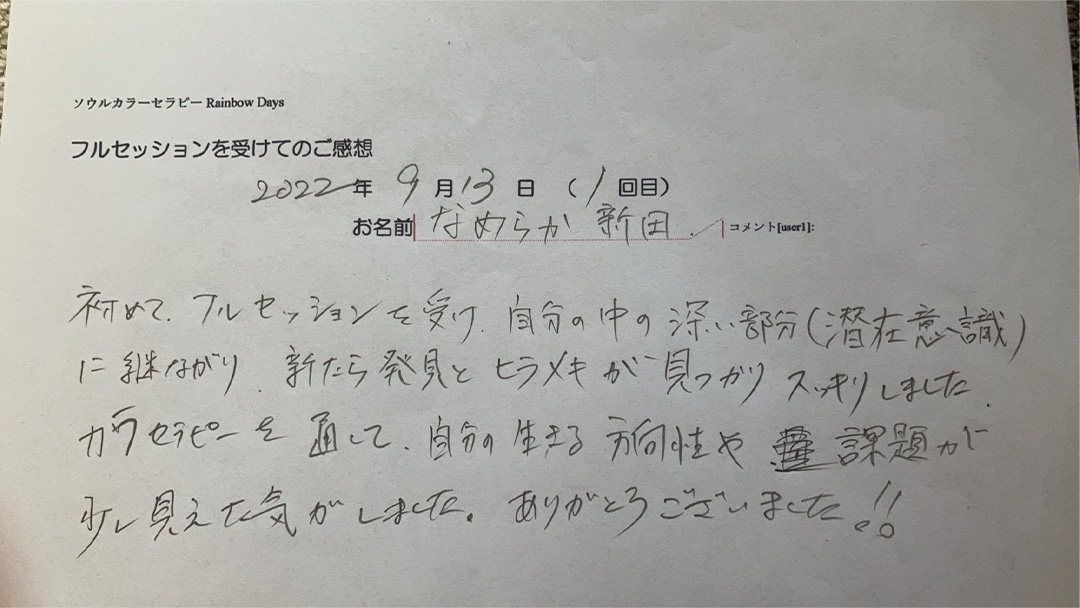 ソウルカラーセラピー Rainbow Days
フルセッションを受けてのご感想
2022年 9月13日 (1回目)
お名前 なめらか 新田. コメント[user1]:
初めて、フルセッションを受け、自分の中の深い部分(潜在意識)
に継ながり、新たら発見とヒラメキが見つかりスッキリしました。
カラセラピーを通して、自分の生きる方向性や 課題が
少し見えた気がしました。ありがとうございました!!